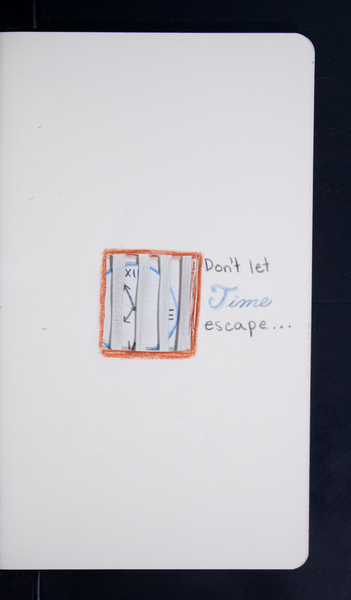 XI
III
Don't let
Time
escape...